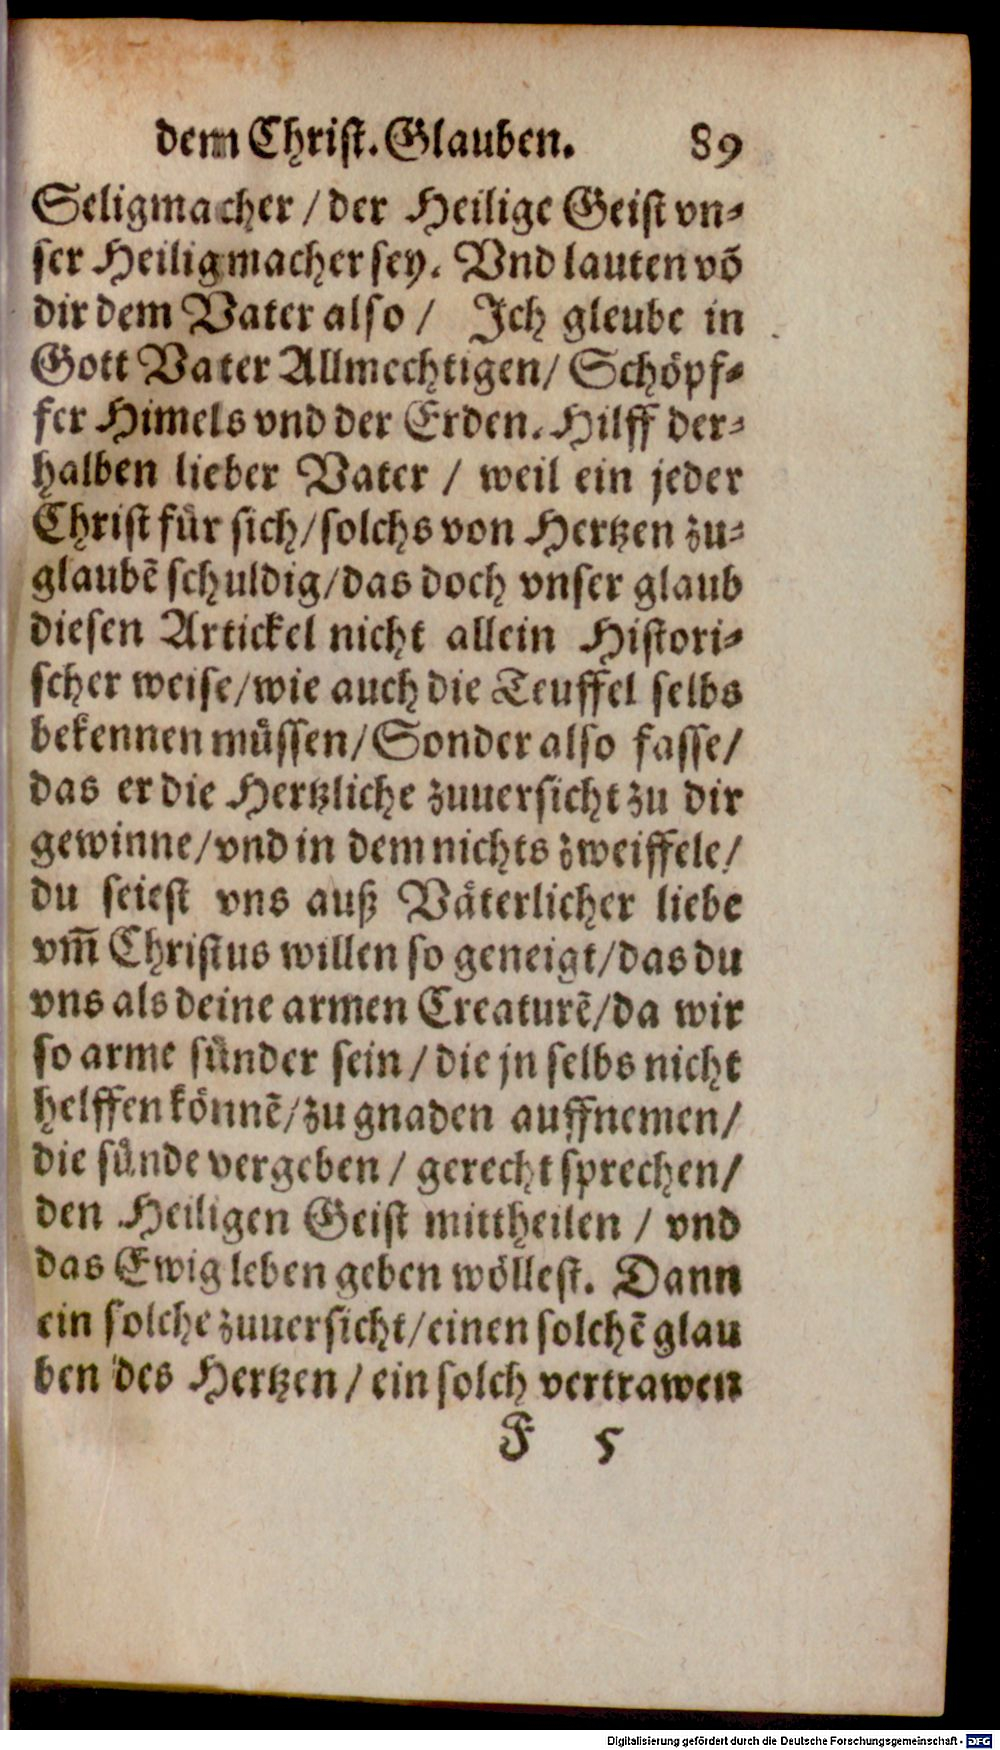 dem Christ. Glauben. 89
Seligmacher / der Heilige Geist vn-
ser Heiligmacher sey. Vnd lauten võ
dir dem Vater also / Ich gleube in
Gott Vater Allmechtigen/ Schöpf-
fer Himels vnd der Erden. Hilff der-
halben lieber Vater / weil ein jeder
Christ für sich/solchs von Hertzen zu-
glaubẽ schuldig/das doch vnser glaub
diesen Artickel nicht allein Histori-
scher weise/wie auch die Teuffel selbs
bekennen müssen/Sonder also fasse/
das er die Hertzliche zuuersicht zu dir
gewinne/vnd in dem nichts zweiffele/
du seiest vns auß Väterlicher liebe
vm̃ Christus willen so geneigt/das du
vns als deine armen Creaturẽ/da wir
so arme sünder sein / die jn selbs nicht
helffen könnẽ/zu gnaden auffnemen/
die sünde vergeben / gerecht sprechen/
den Heiligen Geist mittheilen / vnd
das Ewig leben geben wöllest. Dann
ein solche zuuersicht/einen solchẽ glau
ben des Hertzen / ein solch vertrawen
F 5
Digitalisierung gefördert durch die Deutsche Forschungsgemeinschaft - DFG